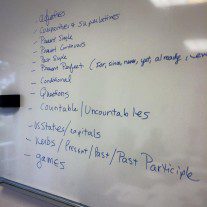 - Adjectives
- Comparatives & Superlatives
- Present Simple
- Present Continuous
- Past Simple
- Present Perfect (for, since, never, yet, already, never
- Conditional
- Questions
- Countable/Uncountables
- US States/capitals
- Verbs/Present/Past/Past Participle
- games